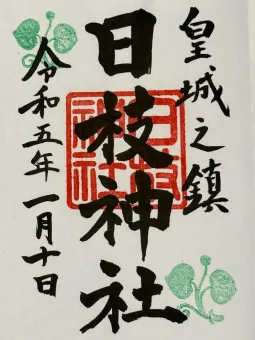 皇城之鎮
日枝神社
日枝神社
令和五年一月十日